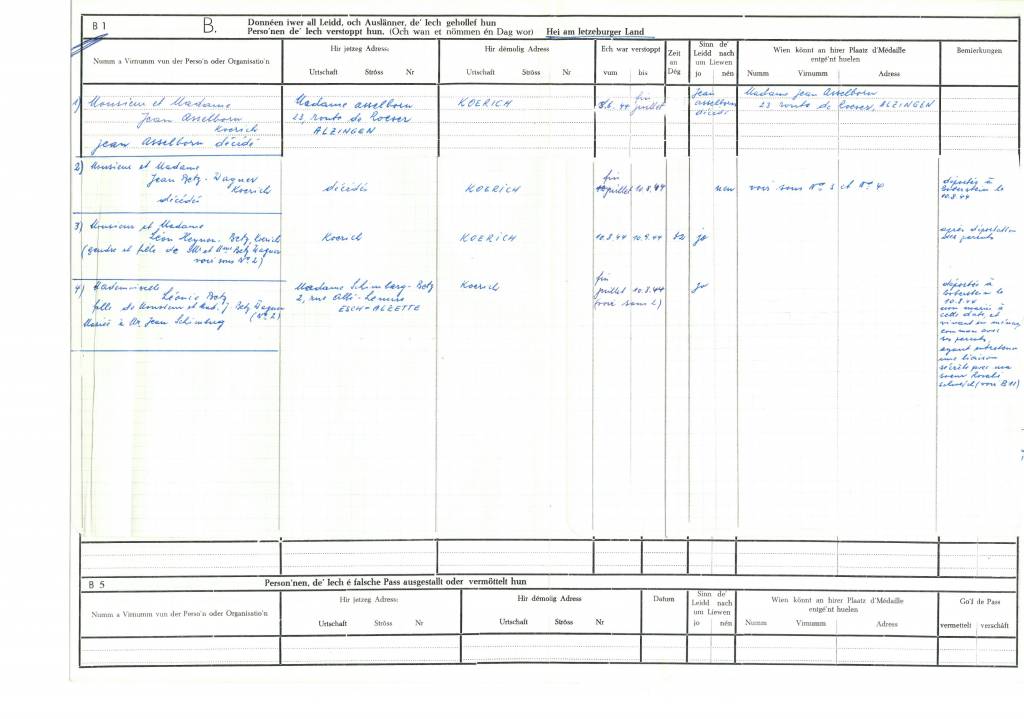 B 1
B.
Donnéen iwer all Leidd, och Auslänner, de' Iech gehollef hun
Perso'nen de' Iech verstoppt hun. (Och wan et nömmen én Dag wor) Hei am letzeburger Land
Numm a Virnumm vun der Perso'n oder Organisatio'n
Hir jetzeg Adress:
Urtschaft Ströss Nr
Hir démolig Adress:
Urtschaft Ströss Nr
Ech war verstoppt
vum bis
Zeit
an
Dég
Sinn de'
Leidd nach
um Liewen
jo nén
Wien könnt an hirer Plaatz d'Médaille
entgé'nt huelen
Numm Virnumm Adress
Bemierkungen
1) Monsieur et Madame
Jean Asselborn
Koerich
Jean Asselborn décédé
Madame Asselborn
23, route de Roeser
ALZINGEN
KOERICH
8.6.44 fin juillet
Jean
Asselborn
décédé
Madame Jean Asselborn
23 route de Roeser, ALZINGEN
2) Monsieur et Madame
Jean Betz-Wagner
Koerich
décédés
décédés
KOERICH
fin
juillet 10.8.44
nen
voir sous No 3 et No 4
déportés à
le
10.8.44
3) Monsieur et Madame
Léon Betz, Koerich
(gendre et fille de Mr et Mme Betz Wagner
voir sous No 2)
Koerich
KOERICH
10.8.44 10.9.44
jo
après déportation
des parents
4) Mademoiselle
Léonie Betz
fille de Monsieur et Mad. J. Betz Wagner
(No 2)
Mariée à Mr Jean
Madame Betz
2, rue
ESCH-ALZETTE
Koerich
fin
juillet 10.8.44
(voir sous 2)
jo
déportée à
le
10.8.44
non mariée à
cette date, et
vivant en ménage
commun avec
ses parents,
ayant entretenu
une liaison
secrète avec ma
soeur
(voir B 11)
B 5
Person'nen, de' Iech é falsche Pass ausgestallt oder vermöttelt hun
Numm a Virnumm vun der Perso'n oder Organisatio'n
Hir jetzeg Adress:
Urtschaft Ströss Nr
Hir démolig Adress
Urtschaft Ströss Nr
Datum
Sinn de'
Leidd nach
um Liewen
jo nén
Wien könnt an hirer Plaatz d'Médaille
entgé'nt huelen
Numm Virnumm Adress
Go'f de Pass
vermettelt verschäft